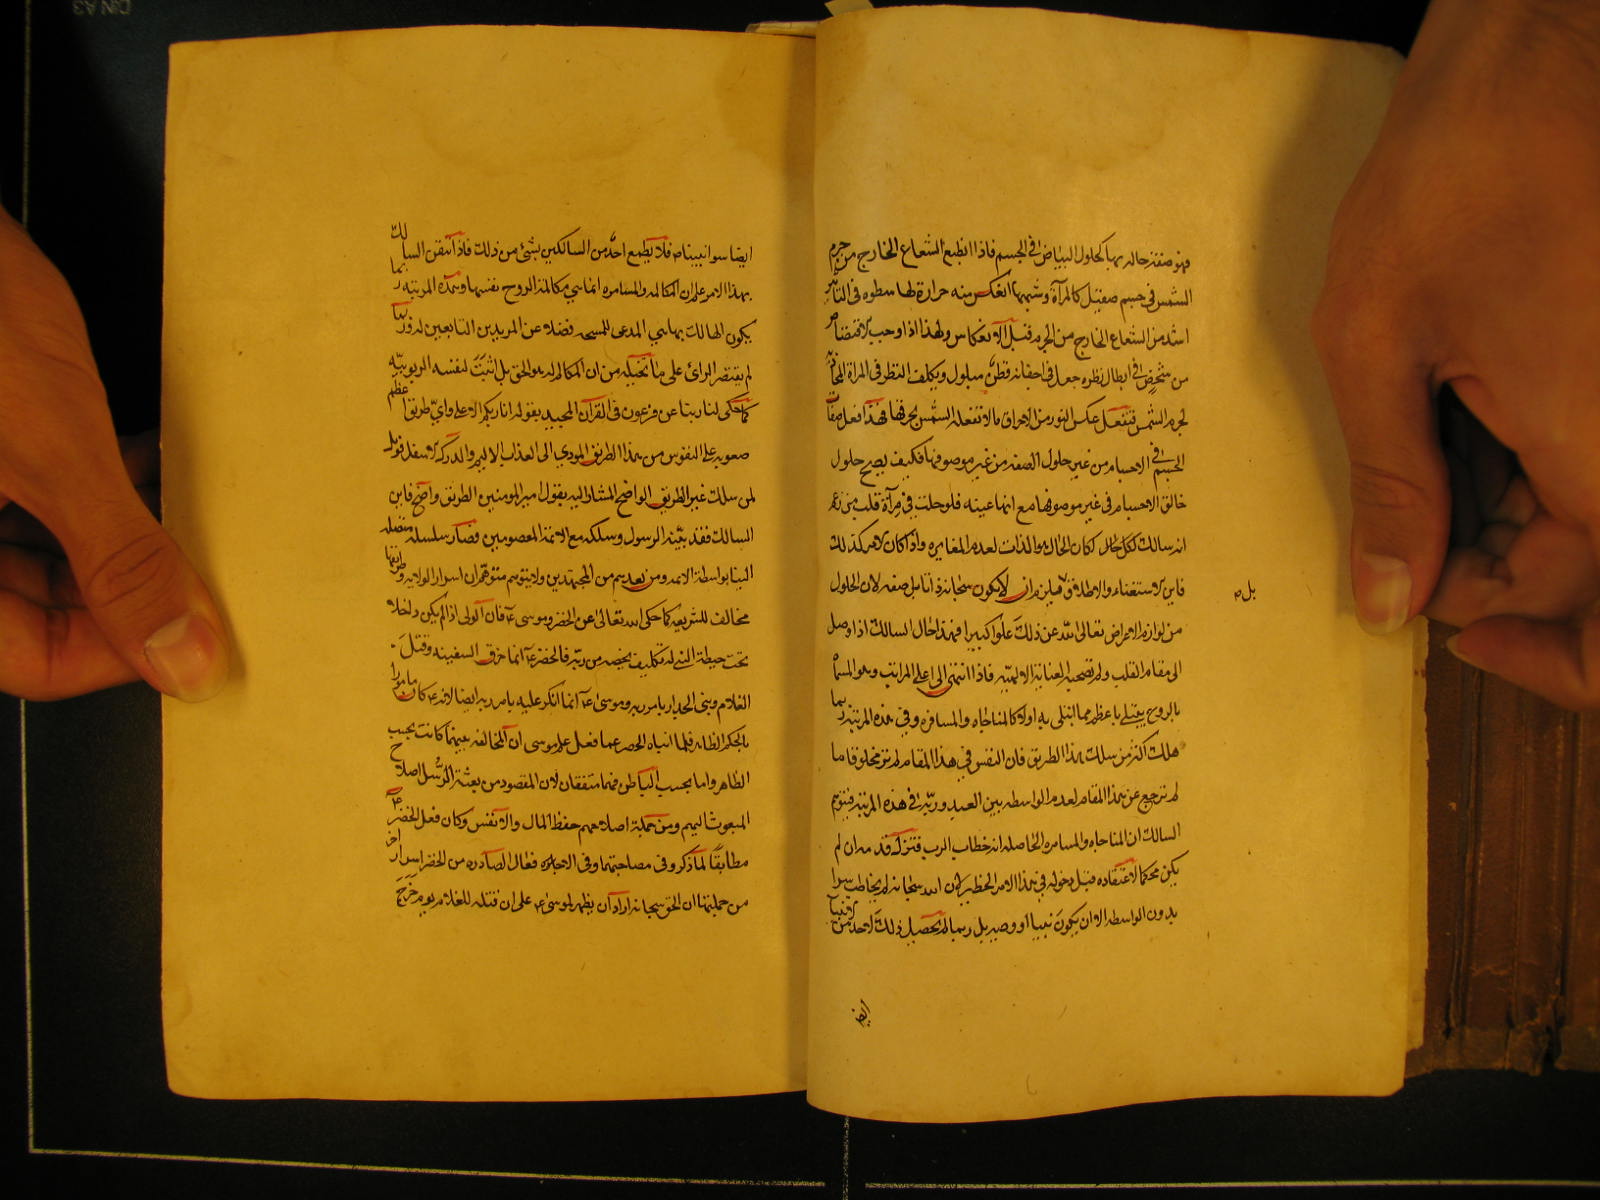 فهو صفته حاله بها كحلول البياض في الجسم فاذا انطبع الشعاع الخارج من جرم
الشمس في جسم صقيل كالمرآة وشبهها انعكس منه حرارة لها سطوه في التاثير
اشد من الشعاع الخارج من الجرم قبل الانعكاس ولهذا اذا وجب الاقتصاص
من شخص في ابطال نظره جعل في اجفانه قطن مبلول ويكلف النظر في المرآة المحاذية
لجرم الشمس فتفعل عكس النور من الاحراق ما لا تفعله الشمس بحرقها فهذا فعل صفات
الجسم في الاجسام من غير حلول الصفه من غير موصوفها فكيف يصح حلول
خالق الاجسام في غير موصوفها مع انها عينه فلو حلت في مرآة قلب من زعم
انه سالك لكل حال لكان الحال هو الذات لعدم المغايره واذا كان الامر كذلك
فاين الاستغناء والاطلاق ولم لا يكون سبحانه ذاتا بل صفه لان الحلول
بل ص
من لوازم الاعراض تعالى الله عن ذلك علوا كبيرا فهذا حال السالك اذا وصل
الى مقام القلب ولم تصحبه العناية الالهيه فاذا انتهى الى اعلى المراتب وهو المسمى
بالروح يبتلى باعظم مما ابتلى به اولا كالمناجاه والمسامره وفي هذه المرتبة ربما
هلك اكثر من سلك هذا الطريق فان النفس في هذا المقام لم تر مخلوقا ما
لم ترجع عن هذا المقام لعدم الواسطه بين العبد وربه في هذه المرتبه فيتوهم
السالك ان المناجاه والمسامره الحاصله انه خطاب الرب فتزل قدمه ان لم
يكن محكما لاعتقاده قبل دخوله في هذا الامر الخطير لان الله سبحانه لم يخاطب بشرا
بدون الواسطه الا ان يكون نبيا او وصيه بل ربما لم يحصل ذلك لاحد من الانبيا
ايضا
ايضا سوا نبينا ص فلا يطمع احد من السالكين بشئ من ذلك فاذا اتقن السالك
بهذا الامر علم ان المكالمه والمسامره انما هي مكالمة الروح نفسها وهذه المرتبه ربما
يكون الهالك بها هي المدعى للمسيح فضلا عن المريدين التابعين له وربما
لم يقتصر الرائ على ما تخيله من ان المكالم له هو الحق بل اثبت لنفسه الربوبيه
كما حكى لنا ربنا عن فرعون في القرآن المجيد بقوله انا ربكم الاعلى واي طريق اعظم
صعوبه على النفوس من هذا الطريق المودي الى العذاب الاليم والدرك الاسفل فويل
لمن سلك غير الطريق الواضح المشار اليه بقول امير المومنين الطريق واضح فاين
السالك فقد بينه الرسول وسلكه مع الائمة المعصومين فصار سلسله متصله
الينا بواسطة الائمه ومن بعدهم من المجتهدين ولا يتوهم متوهم ان اسرار الولايه وطرايقها
مخالف للشريعه كما حكى الله تعالى عن الخضر وموسى ع فان الولي اذا لم يكن داخلا
تحت حيطة النبي له تكليف يخصه من ربه فالخضر ع انما خرق السفينه وقتل
الغلام وبنى الجدار بامر ربه وموسى ع انما انكر عليه بامر ربه ايضا لانه ع كان مامورا
بالحكم الظاهر فلما انباه الخضر عما فعل علم موسى ان المخالفه بينهما كانت بحسب
الظاهر واما بحسب الباطن فهما متفقان لان المقصود من بعثة الرسل اصلاح
المبعوث اليهم ومن جملة اصلاحهم حفظ المال والانفس وكان فعل الخضر ع
مطابقا لما ذكر وفي مصاحبتهما وفي الافعال الصادره من الخضر اسرار اخر
من جملتها ان الحق سبحانه اراد ان يظهر لموسى ع على ان قتله للغلام يوم خرج